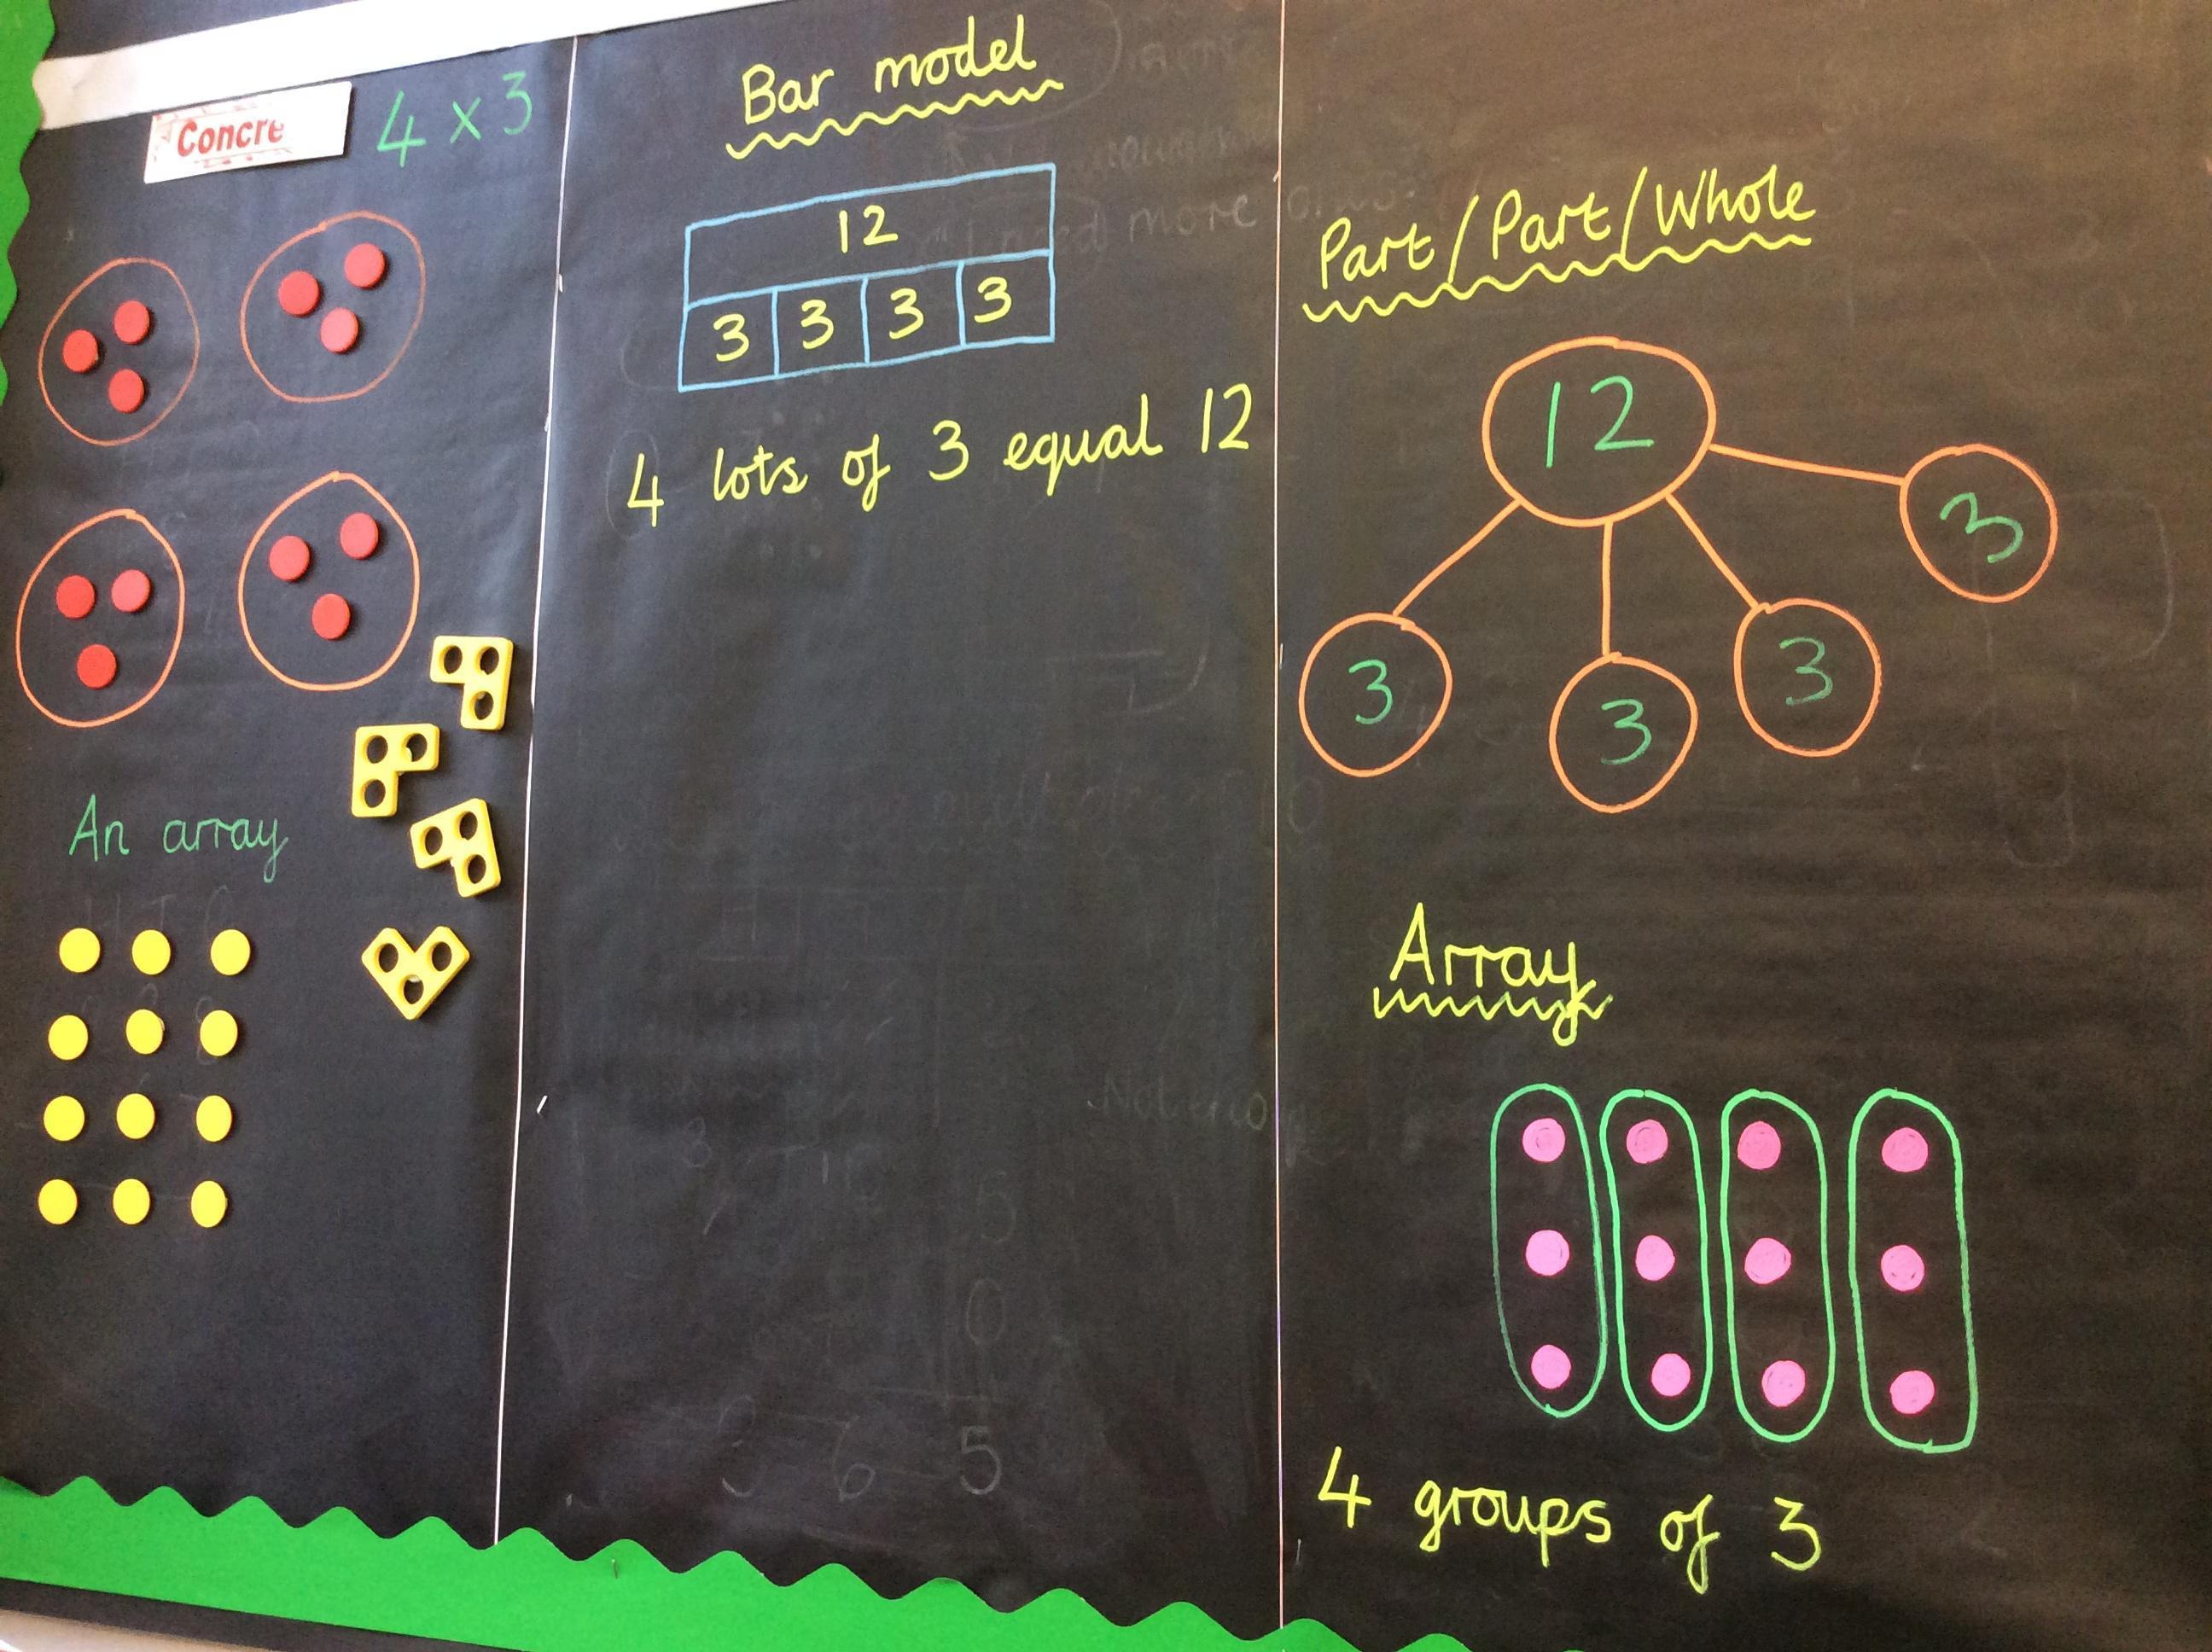 Concre
4 x 3
An array
Bar model
12
3 3 3 3
4 lots of 3 equal 12
Part/Part/Whole
12
3
3
3
3
Array
4 groups of 3